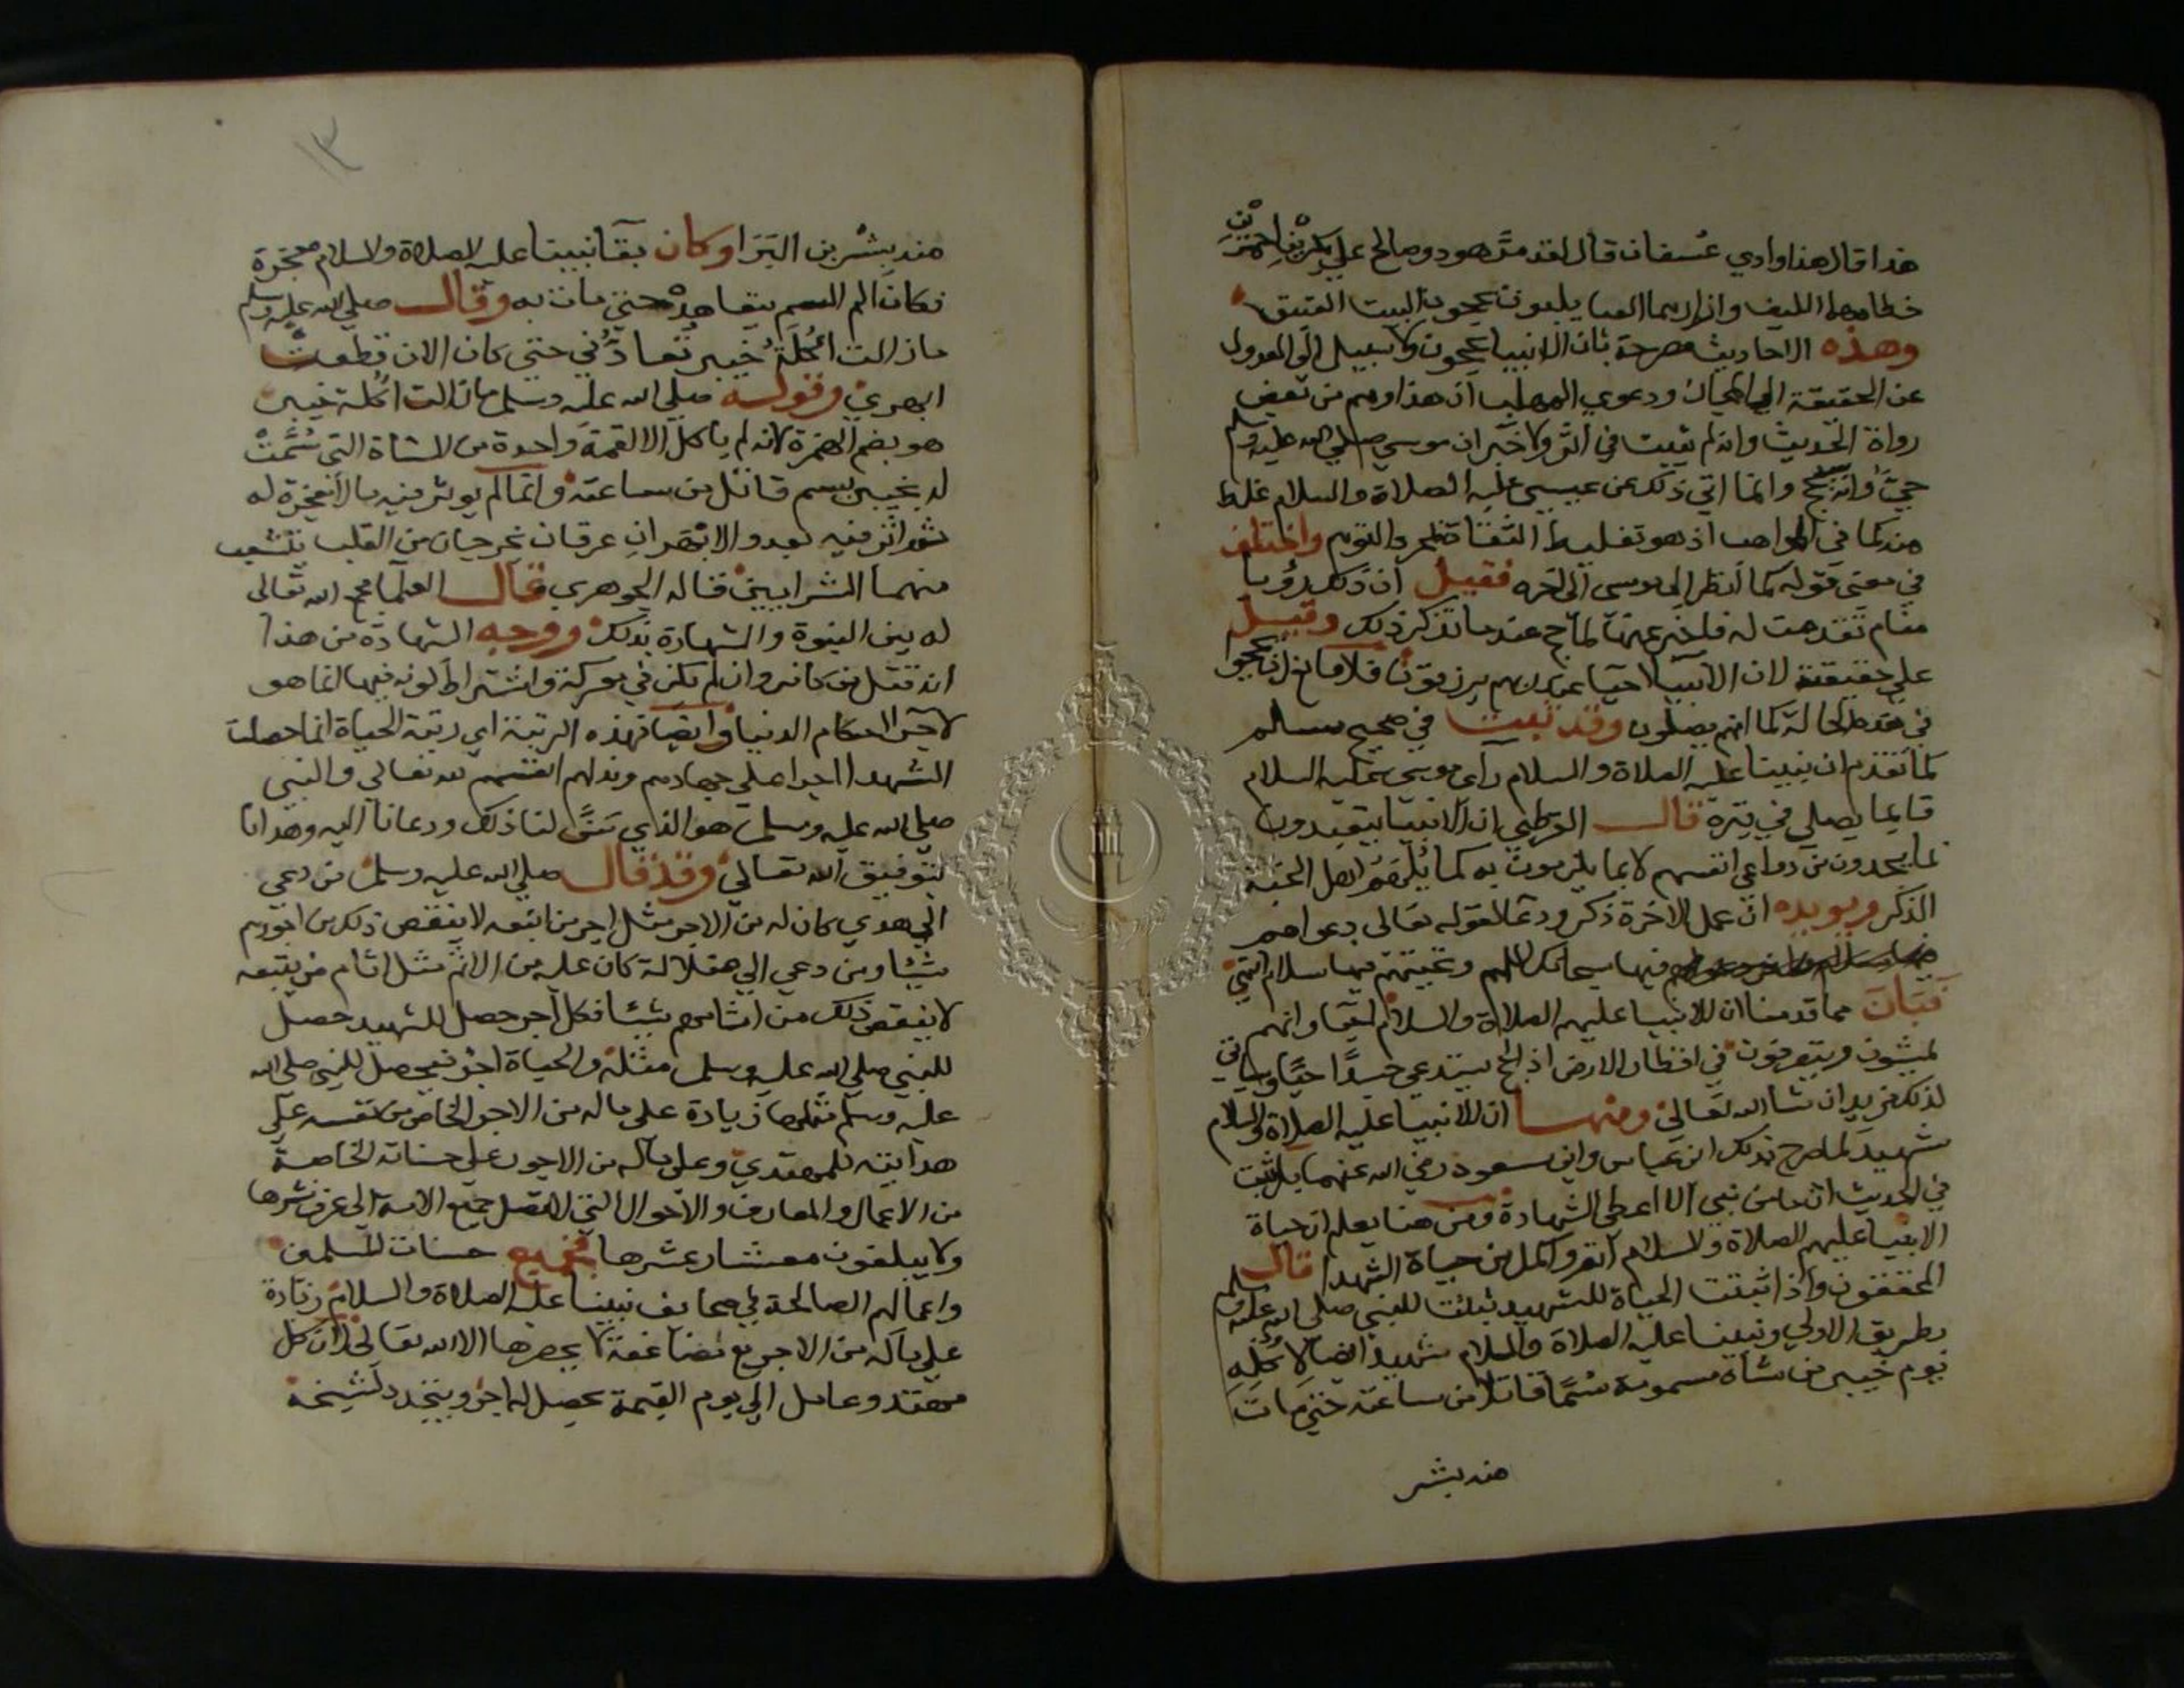 هذا قال هذا وادي عسفان قال لقد مر هود وصالح على بكرين احمرين
خطامهما الليف وازارهما العبا يلبون يحجون البيت العتيق
وهذه الاحاديث مصرحة بان الانبيا يحجون ولا سبيل الى العدول
عن الحقيقة الى المجاز ودعوي المهلب ان هذا وهم من بعض
رواة الحديث وانه لم يثبت في اثر ولا خبر ان موسى صلي الله عليه وسلم
حي وانه يحج وانما اتي ذلك عن عيسى عليه الصلاة والسلام غلط
منه كما في المواهب اذ هو تغليط الثقاة بمجرد التوهم واختلف
في معنى قوله كما انظر الى موسى الى اخره فقيل ان ذلك رؤيا
منام تقدمت له فاخبر عنها لما حج عندما تذكر ذلك وقيل
على حقيقته لان الانبيا احيا عند ربهم يرزقون فلا مانع ان يحجوا
في هذه الحالة كما انهم يصلون وقد ثبت في صحيح مسلم
كما تقدم ان نبينا عليه الصلاة والسلام راى موسى عليه السلام
قايما يصلي في قبره قال القرطبي ان الانبيا يتعبدون
بما يجدون من دواعي انفسهم لا بما يلزمون به كما يلهم اهل الجنة
الذكر ويويده ان عمل الاخرة ذكر ودعا لقوله تعالى دعواهم
فيها سبحانك اللهم وتحيتهم فيها سلام انتهى
فبان مما قدمنا ان للانبيا عليهم الصلاة والسلام وانهم
يمشون ويتصرفون في اقطار الارض اذ الحج يستدعي جسدا حيا وسياتي
لذلك مزيد ان شا الله تعالى ومنها ان للانبيا عليه الصلاة والسلام
شهيد لما صرح بذلك ابن عباس وابن مسعود رضي الله عنهما بل ثبت
في الحديث ان ما من نبي الا اعطى الشهادة ومن هنا يعلم ان حياة
الانبيا عليهم الصلاة والسلام اتم واكمل من حياة الشهدا قال
المحققون واذا ثبتت الحياة للشهيد ثبتت للنبي صلى الله عليه وسلم
بطريق الاولي ونبينا عليه الصلاة والسلام شهيد ايضا لاكله
يوم خيبر من شاة مسمومة سما قاتلا من ساعته حتى مات
منه بشر
١٣
منه بشر بن البرا وكان بقا نبينا عليه الصلاة والسلام معجزة
فكان الم السم يتعاهده حتى مات به وقال صلي الله عليه وسلم
مازالت اكلة خيبر تعادني حتى كان الان قطعت
ابهري وقوله صلي الله عليه وسلم مازالت اكلة خيبر
هو بضم الهمزة لانه لم ياكل الا لقمة واحدة من الشاة التي سمت
له بخيبر بسم قاتل من ساعته وانما لم يوثر فيه حالا معجزة له
ثم اثر فيه بعد والابهران عرقان يخرجان من القلب يتشعب
منهما الشرايين قاله الجوهري قال العلما جمع الله تعالى
له بين النبوة والشهادة بذلك ووجه الشهادة من هذا
انه قتل من كافر وان لم يكن في معركة واشتراط كونه فيها انما هو
لاجرا احكام الدنيا وايضا فهذه الرتبة اي رتبة الحياة انما حصلت
للشهدا اجرا على جهادهم وبذلهم انفسهم لله تعالى والنبي
صلي الله عليه وسلم هو الذي سن لنا ذلك ودعانا اليه وهدانا
بتوفيق الله تعالى وقد قال صلي الله عليه وسلم من دعي
الي هدي كان له من الاجر مثل اجر من اتبعه لا ينقص ذلك من اجورهم
شيئا ومن دعي الي ضلالة كان عليه من الاثم مثل اثام من يتبعه
لا ينقص ذلك من اثامهم شيئا فكل اجر حصل للشهيد حصل
للنبي صلي الله عليه وسلم مثله والحياة اجر فيحصل للنبي صلي الله
عليه وسلم مثلها زيادة على ماله من الاجر الخاص من نفسه على
هدايته للمهتدي وعلى ماله من الاجور على حسناته الخاصة
من الاعمال والمعارف والاحوال التي لا تصل جميع الامة الى عرف نشرها
ولا يبلغون معشار عشرها فجميع حسنات المسلمين
واعمالهم الصالحة في صحايف نبينا عليه الصلاة والسلام زيادة
على ماله من الاجر مع مضاعفة لا يحصرها الا الله تعالى لان كل
مهتد وعامل الي يوم القيمة يحصل له اجر ويتجدد لشيخه